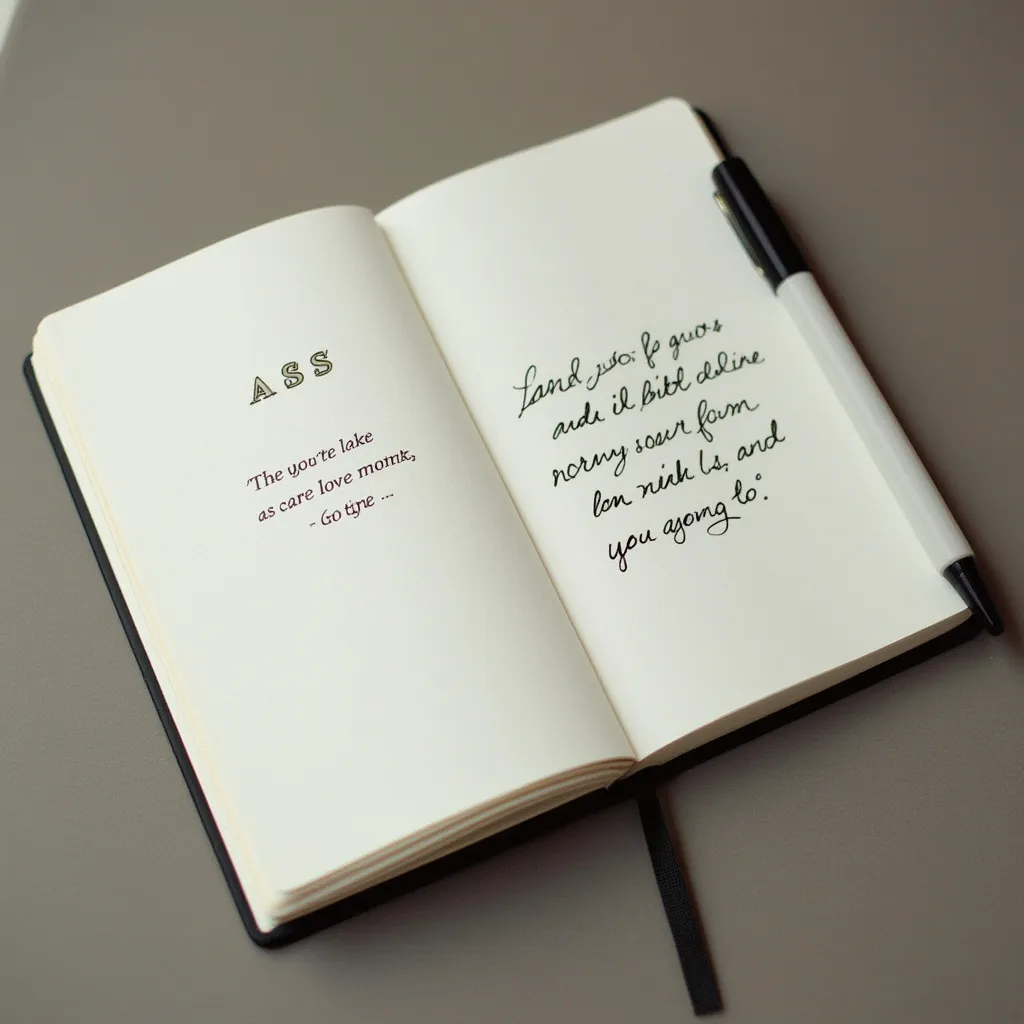 ASS
"The you're lake
as care love momk,
- Go tjne ...
Land juso: fo guos
aude il bibl deline
norwy soeur fowm
lon nich ls, and
you agomg to: